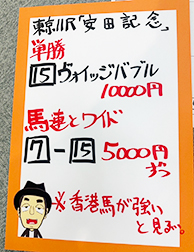 東京11R「安田記念」
単勝
15 ヴォイッジバブル
10000円
馬連とワイド
7-15 5000円
ずつ
※香港馬が強い
と見ます。